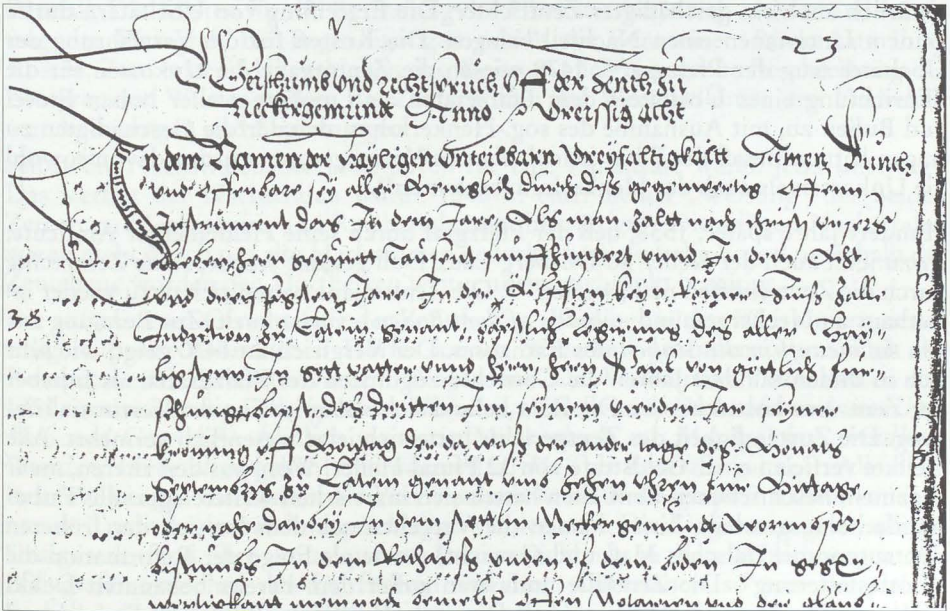 Weisthumb vnd rechtspruch vff der Zennth zu
Neckergemündt Anno Dreissig acht
In dem Namen der Hayligen Onteilbarn Dreyfaltigkaitt Amen Kundt
vnd offenbare sey aller Menigslich durch diss gegenwertig offenn
Instrument das In dem Jare Als man zaltt nach christi vnnsers
lieben hern gepurtt Tausent funffhundert vnnd In dem Acht
vnd dreissigsten Jare In der Eilfften keyser Zinss zall
38
Indiction zu Latein genant, Bapstlicher Regirung des aller
In gott vatter vnnd hern, hern Paul von gottlich fur-
Bapst des dritten Inn seynem vierden Jar seyner
kronung vff Montag den der do was der tage des Monats
September zu Latein genant vmb zehen vhren fur Mittage
oder nah darbey, In dem stettlin Neckergemundt Wormser
bistumbs In dem Rathauss vnden vf dem boden In
mein offen Notarien vnd der